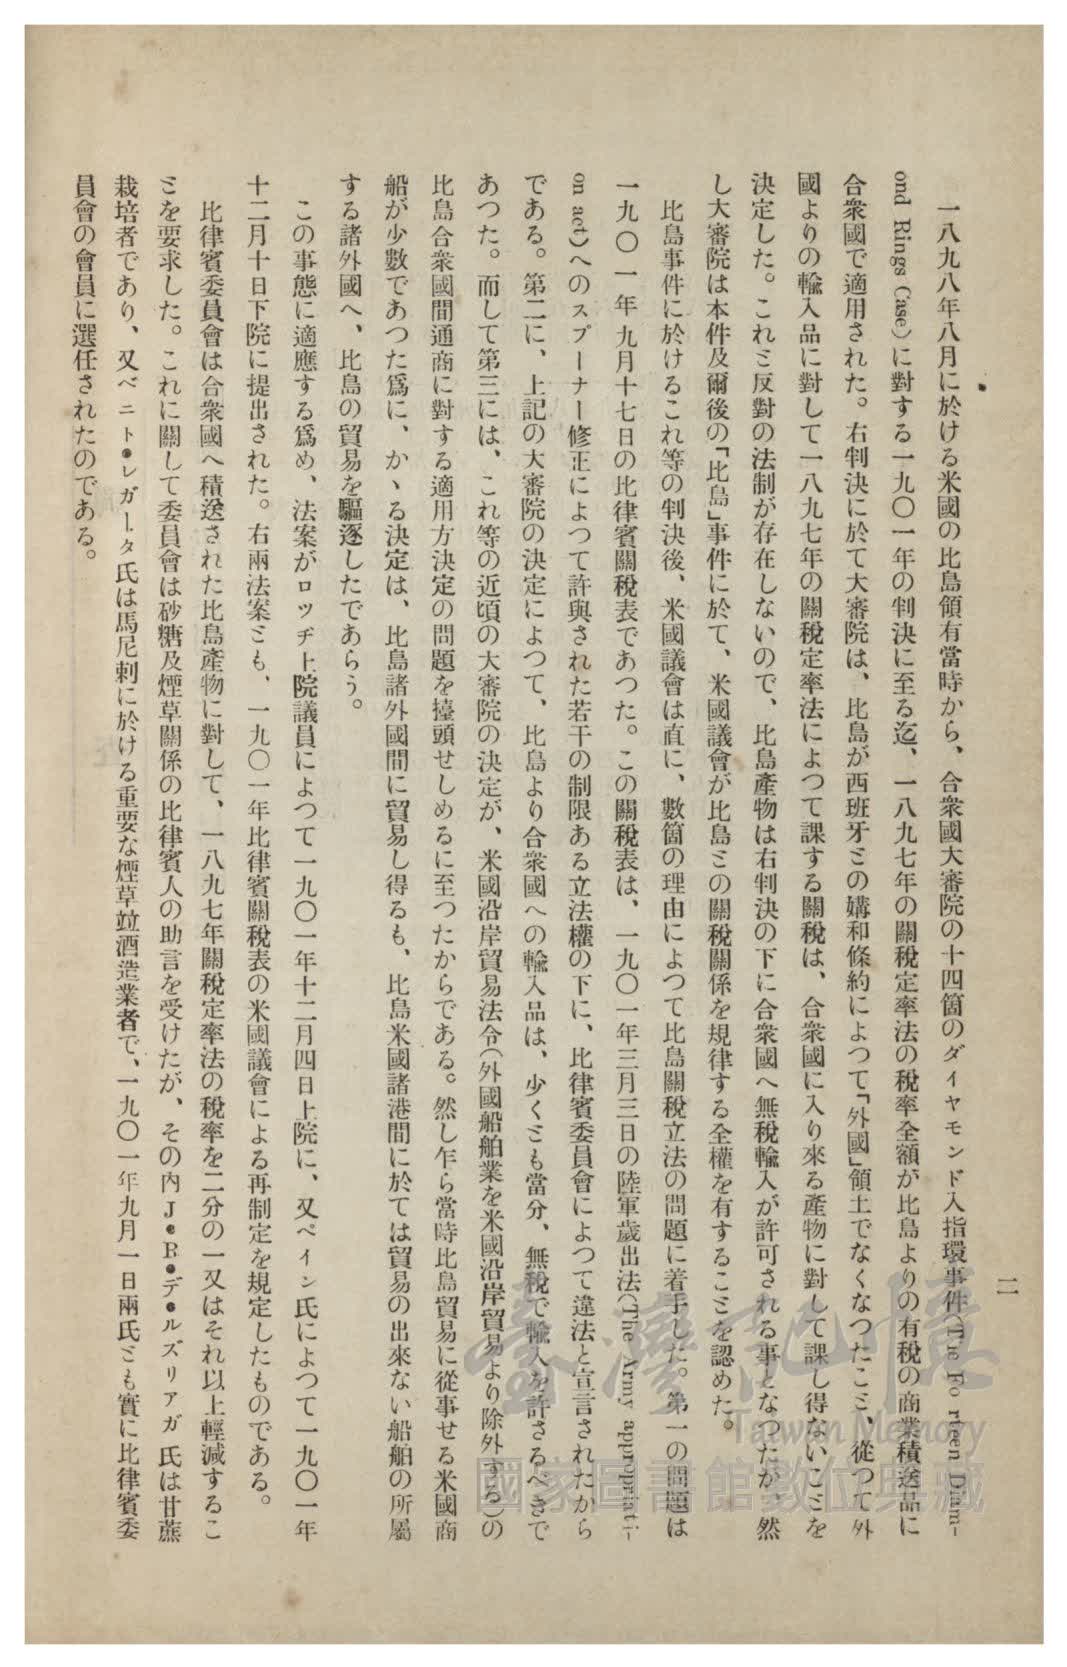 二
一八九八年八月に於ける米國の比島領有當時から、合衆國大審院の十四箇のダイヤモンド入指環事件(The Fo rteen Diam-
ond Rings Case)に對する一九〇一年の判決に至る迄、一八九七年の關稅定率法の稅率全額が比島よりの有稅の商業積送品に
合衆國で適用された。右判決に於て大審院は、比島が西班牙ミの媾和條約によつて「外國」領土でなくなつたこミ、從つて外
國よりの輸入品に對して一八九七年の關稅定率法によつて課する關稅は、合衆國に入り來る產物に對して課し得ないこミを
決定した。これミ反對の法制が存在しないので、比島產物は右判決の下に合衆國へ無稅輸入が許可される事となつたが、然
し大審院は本件及爾後の「比島」事件に於て、米國議會が比島ミの關稅關係を規律する全權を有するこミを認めた。
比島事件に於けるこれ等の判決後、米國議會は直に、數箇の理由によつて比島關稅立法の問題に着手した。第一の問題は
一九〇一年九月十七日の比律賓關稅表であつた。この關稅表は、一九〇一年三月三日の陸軍歲出法(The Army appropriati-
on act)へのスプーナー修正によつて許與された若干の制限ある立法權の下に、比律賓委員會によつて違法と宣言されたから
である。第二に、上記の大審院の決定によつて、比島より合衆國への輸入品は、少くミも當分、無稅で輸入を許さるべきで
あつた。而して第三には、これ等の近頃の大審院の決定が、米國沿岸貿易法令(外國船舶業を米國沿岸貿易より除外する)の
比島合衆國間通商に對する適用方決定の問題を擡頭せしめるに至つたからである。然し乍ら當時比島貿易に從事せる米國商
船が少數であつた爲に、かゝる決定は、比島諸外國間に貿易し得るも、比島米國諸港間に於ては貿易の出來ない船舶の所屬
する諸外國へ、比島の貿易を驅逐したであらう。
この事態に適應する爲め、法案がロッヂ上院議員によつて一九〇一年十二月四日上院に、又ペイン氏によつて一九〇一年
十二月十日下院に提出された。右兩法案ミも、一九〇一年比律賓關稅表の米國議會による再制定を規定したものである。
比律賓委員會は合衆國へ積送された比島產物に對して、一八九七年關稅定率法の稅率を二分の一又はそれ以上輕減するこ
ミを要求した。これに關して委員會は砂糖及煙草關係の比律賓人の助言を受けたが、その內J・R・デ・ルズリアガ氏は甘蔗
栽培者であり、又ベニト・レガータ氏は馬尼剌に於ける重要な煙草竝酒造業者で、一九〇一年九月一日兩氏ミも實に比律賓委
員會の會員に選任されたのである。
臺灣記憶
Taiwan Memory
國家圖書館數位典藏